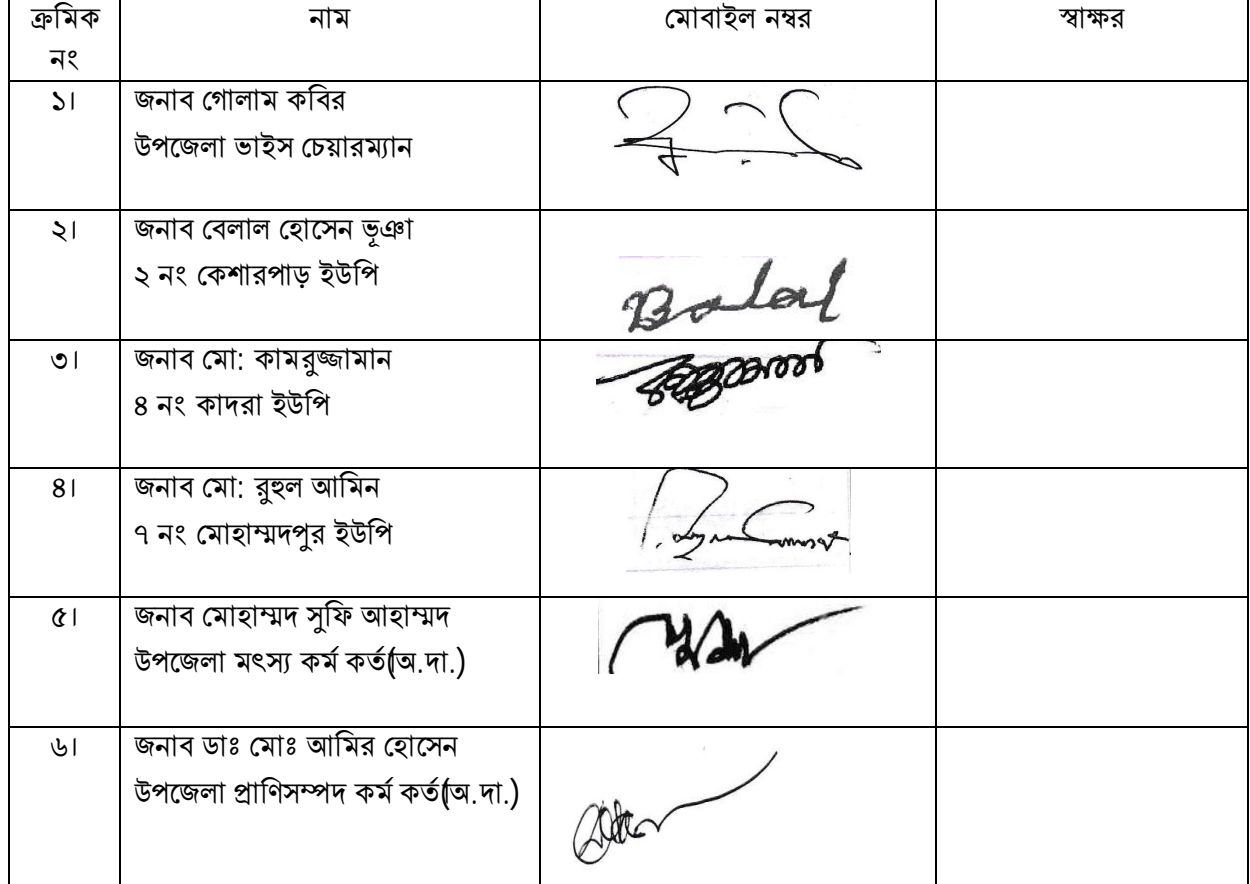 ক্রমিক নং
নাম
মোবাইল নম্বর
স্বাক্ষর
১।
জনাব গোলাম কবির
উপজেলা ভাইস চেয়ারম্যান
২।
জনাব বেলাল হোসেন ভূঞা
২ নং কেশারপাড় ইউপি
Balal
৩।
জনাব মো: কামরুজ্জামান
৪ নং কাদরা ইউপি
৪।
জনাব মো: রুহুল আমিন
৭ নং মোহাম্মদপুর ইউপি
৫।
জনাব মোহাম্মদ সুফি আহাম্মদ
উপজেলা মৎস্য কর্ম কর্ত(অ.দা.)
৬।
জনাব ডাঃ মোঃ আমির হোসেন
উপজেলা প্রাণিসম্পদ কর্ম কর্ত(অ.দা.)